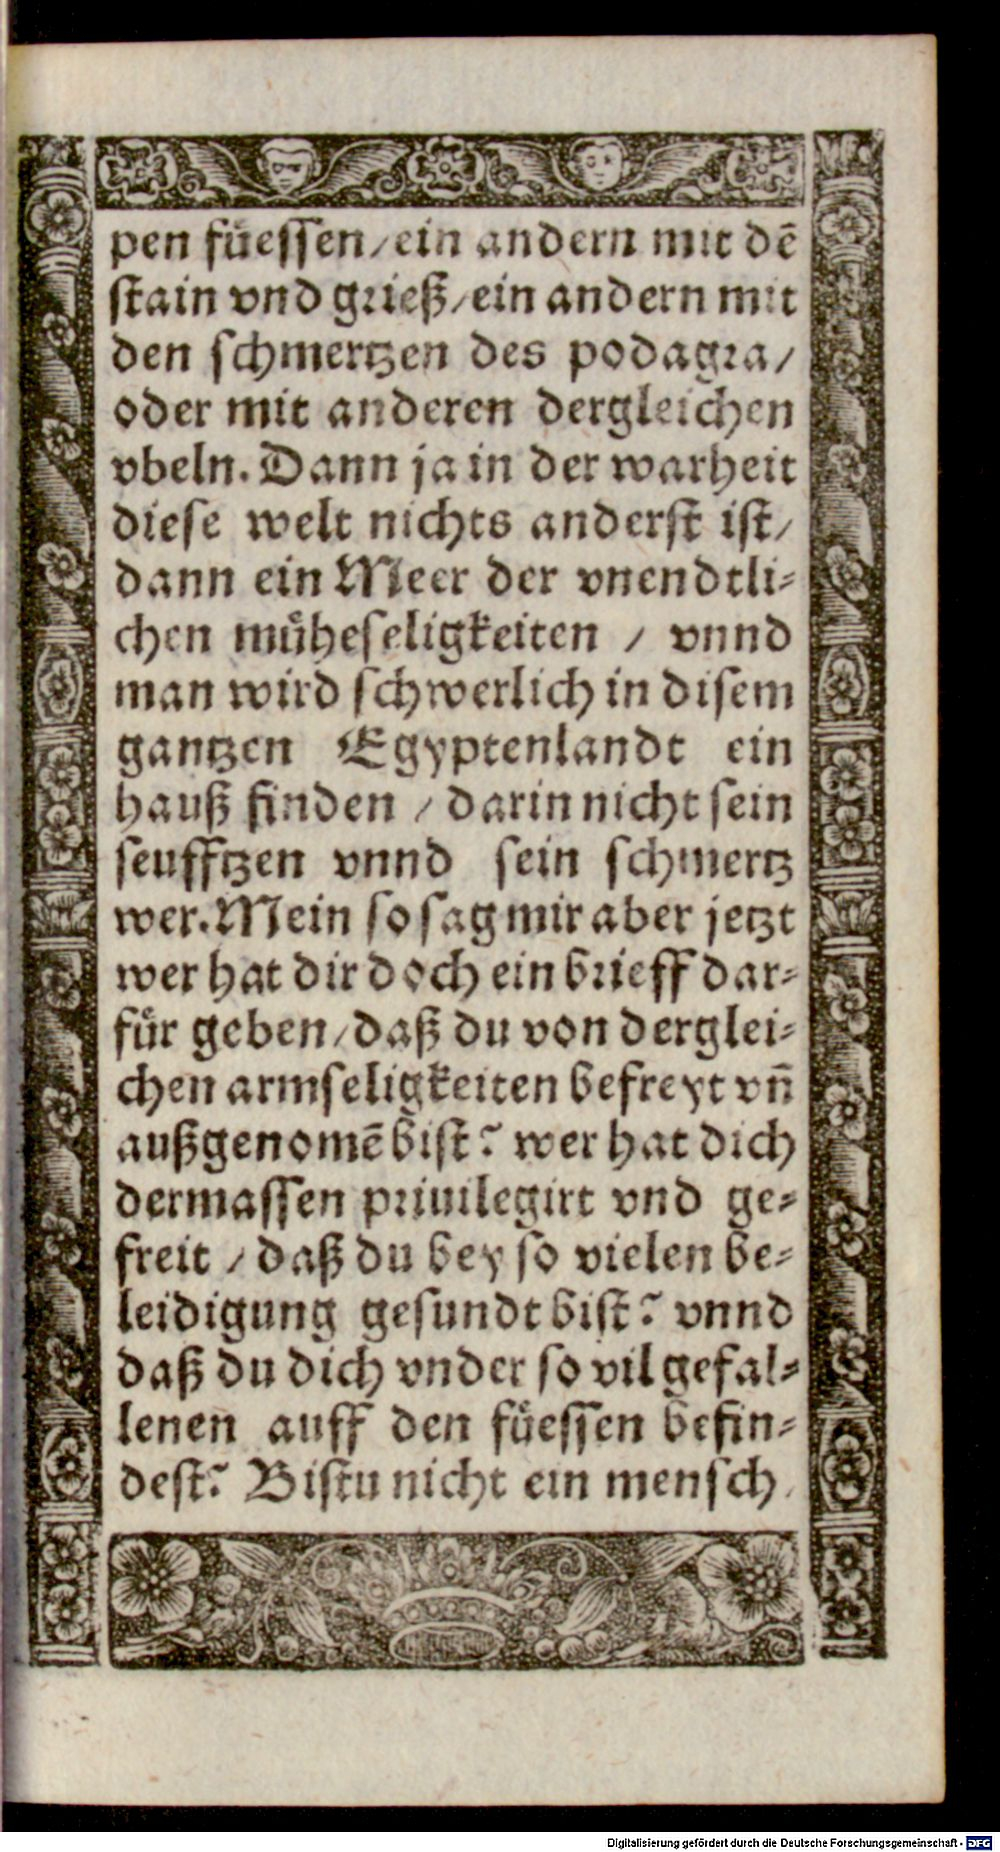 pen fuͤessen/ein andern mit dẽ
stain vnd grieß/ein andern mit
den schmertzen des podagra/
oder mit anderen dergleichen
vbeln. Dann ja in der warheit
diese welt nichts anderst ist/
dann ein Meer der vnendtli⸗
chen muͤheseligkeiten / vnnd
man wird schwerlich in disem
gantzen Egyptenlandt ein
hauß finden / darin nicht sein
seufftzen vnnd sein schmertz
wer. Mein so sag mir aber jetzt
wer hat dir doch ein brieff dar⸗
fuͤr geben/daß du von derglei⸗
chen armseligkeiten befreyt vñ
außgenomẽ bist? wer hat dich
dermassen priuilegirt vnd ge⸗
freit / daß du bey so vielen be⸗
leidigung gesundt bist? vnnd
daß du dich vnder so vil gefal⸗
lenen auff den fuͤessen befin⸗
dest? Bistu nicht ein mensch
Digitalisierung gefördert durch die Deutsche Forschungsgemeinschaft - DFG